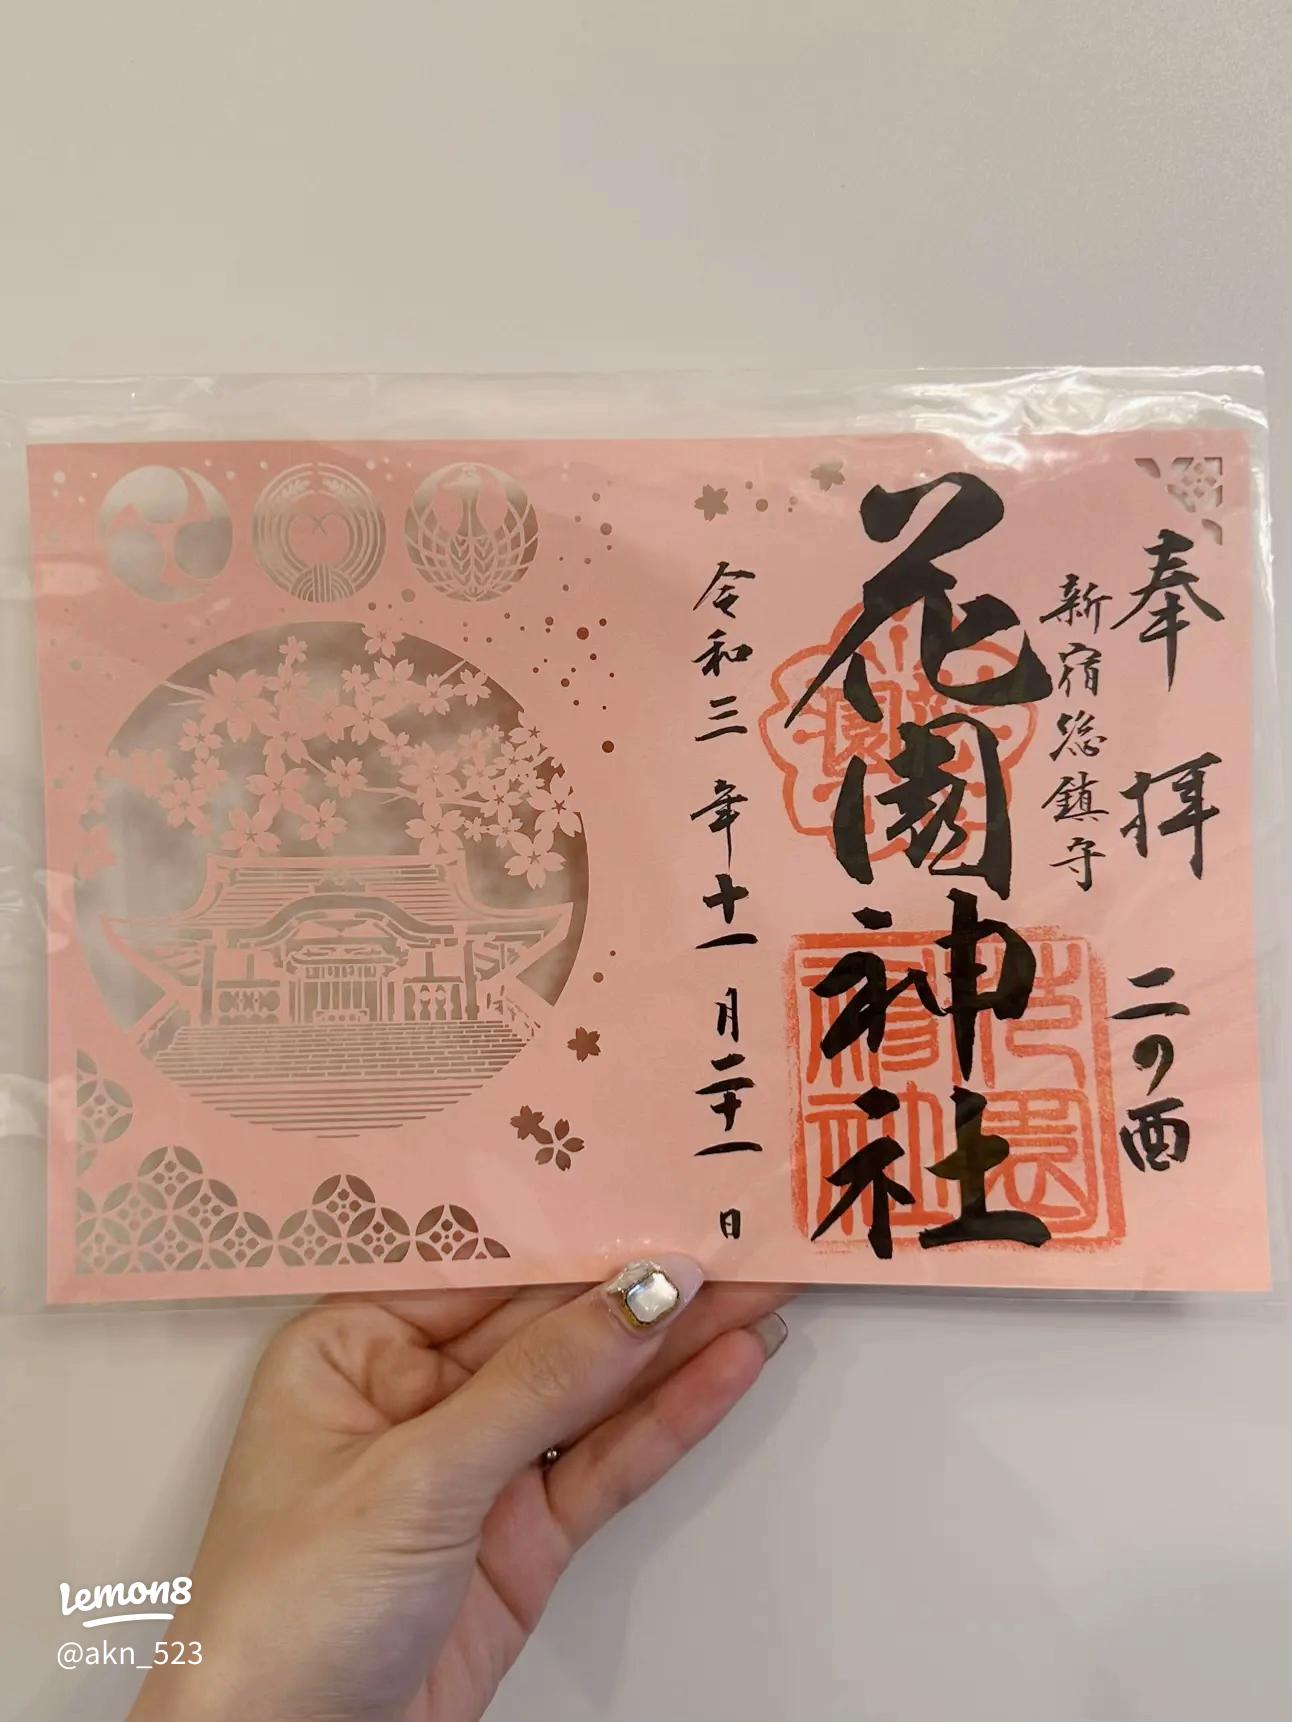 奉拝 二の酉
新宿総鎮守
花園神社
令和三年十一月二十一日
花園神社
Lemon8
@akn_523